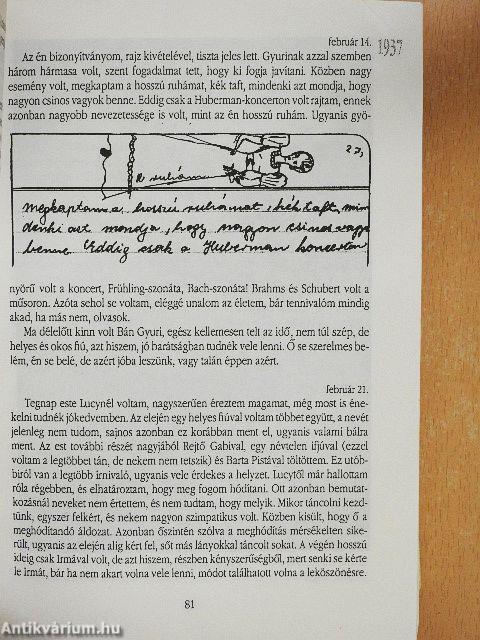 február 14.
1937
Az én bizonyítványom, rajz kivételével, tiszta jeles lett. Gyurinak azzal szemben
három hármasa volt, szent fogadalmat tett, hogy ki fogja javítani. Közben nagy
esemény volt, megkaptam a hosszú ruhámat, kék taft, mindenki azt mondja, hogy
nagyon csinos vagyok benne. Eddig csak a Huberman-koncerton volt rajtam, ennek
azonban nagyobb nevezetessége is volt, mint az én hosszú ruhám. Ugyanis gyö-
27,
a ruhám
megkaptam a hosszú ruhámat, kék taft, min
denki azt mondja, hogy nagyon csinos vagy
benne. Eddig csak a Huberman koncerton
nyörű volt a koncert, Frühling-szonáta, Bach-szonáta! Brahms és Schubert volt a
műsoron. Azóta sehol se voltam, eléggé unalom az életem, bár tennivalóm mindig
akad, ha más nem, olvasok.
Ma délelőtt kinn volt Bán Gyuri, egész kellemesen telt az idő, nem túl szép, de
helyes és okos fiú, azt hiszem, jó barátságban tudnék vele lenni. Ő se szerelmes be-
lém, én se belé, de azért jóba leszünk, vagy talán éppen azért.
február 21.
Tegnap este Lucynél voltam, nagyszerűen éreztem magamat, még most is éne-
kelni tudnék jókedvemben. Az elején egy helyes fiúval voltam többet együtt, a nevét
jelenleg nem tudom, sajnos azonban ez korábban ment el, ugyanis valami bálra
ment. Az est további részét nagyjából Rejtő Gabival, egy névtelen ifjúval (ezzel
voltam a legtöbbet tán, de nekem nem tetszik) és Barta Pistával töltöttem. Ez utób-
biról van a legtöbb írnivaló, ugyanis vele érdekes a helyzet. Lucytől már hallottam
róla régebben, és elhatároztam, hogy meg fogom hódítani. Ott azonban bemutat-
kozásnál neveket nem értettem, és nem tudtam, hogy melyik. Mikor táncolni kezd-
tünk, egyszer felkért, és nekem nagyon szimpatikus volt. Közben kisült, hogy ő a
meghódítandó áldozat. Azonban őszintén szólva a meghódítás mérsékelten sike-
rült, ugyanis az elején alig kért fel, sőt más lányokkal táncolt sokat. A végén hosszú
ideig csak Irmával volt, de azt hiszem, részben kényszerűségből, mert senki se kérte
le Irmát, bár ha nem akart volna vele lenni, módot találhatott volna a leköszönésre.
81
Antikvárium.hu